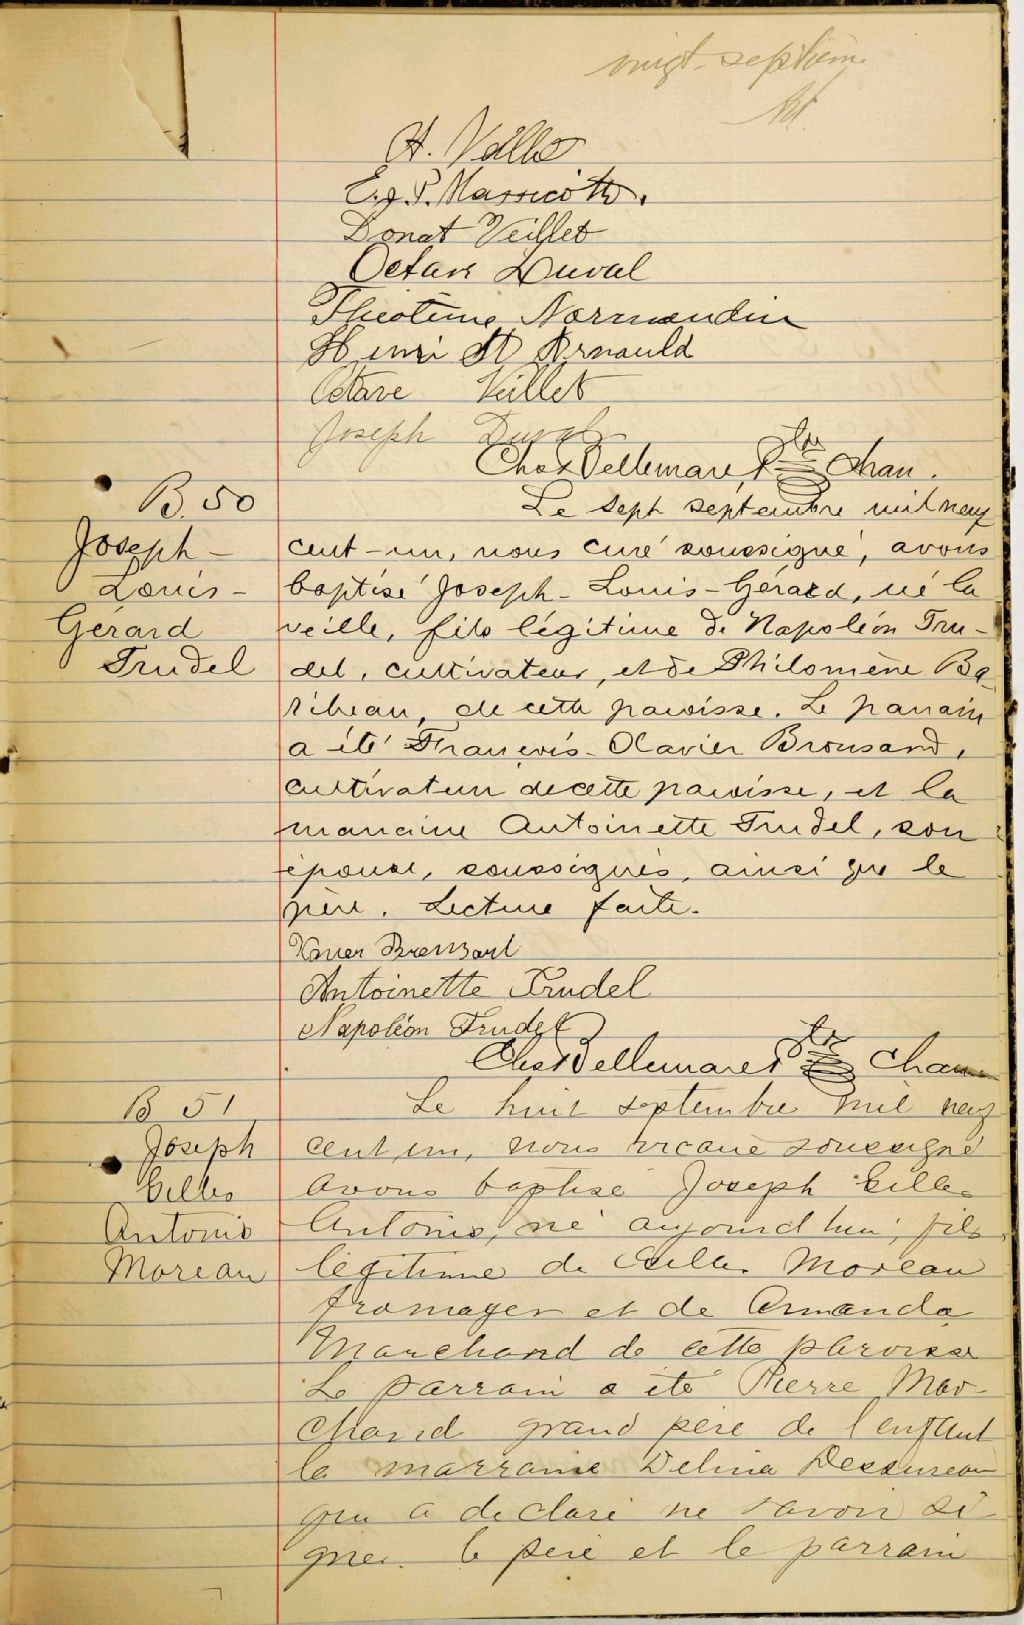 vingt-septième
H. Veillet
E. J. P. Massicotte.
Donat Veillet
Octave Duval
Théotime Normandin
Henri St Arnauld
Octave Veillet
Joseph Duval
Chs Bellemare, Ptre Chan.
B. 50
Joseph-
Louis-
Gérard
Trudel
Le sept septembre mil neuf
cent-un, nous curé soussigné, avons
baptisé Joseph-Louis-Gérard, né la
veille, fils légitime de Napoléon Tru-
del, cultivateur, et de Philomène Ba-
ribeau, de cette paroisse. Le parrain
a été François-Xavier Brousard,
cultivateur de cette paroisse, et la
marraine Antoinette Trudel, son
épouse, soussignés, ainsi que le
père. Lecture faite.
Xavier Broussard
Antoinette Trudel
Napoléon Trudel
Chs Bellemare Ptre Chan.
B 51
Joseph
Gilles
Antonio
Moreau
Le huit septembre mil neuf
cent un, nous vicaire soussigné
avons baptisé Joseph Gilles
Antonio, né aujourd'hui, fils
légitime de Gilles Moreau
fromager et de Amanda
Marchand de cette paroisse
Le parrain a été Pierre Mar-
chand grand père de l'enfant
la marraine Delina Dessureau
qui a déclaré ne savoir si-
gner. le père et le parrain